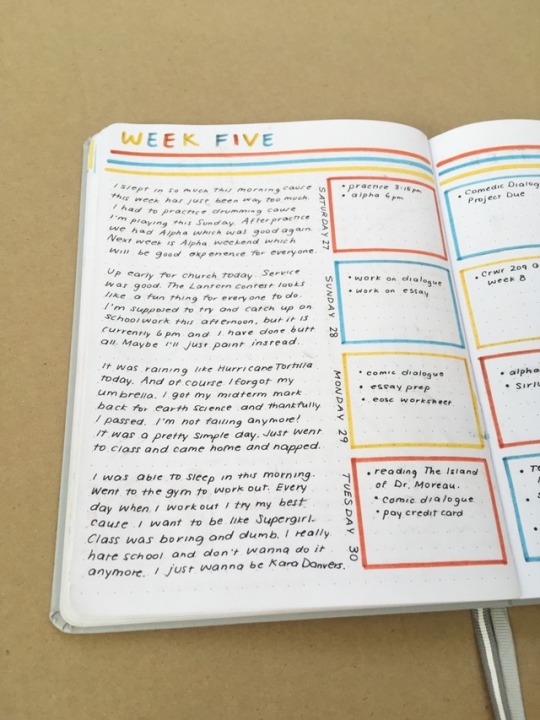 WEEK FIVE
I slept in so much this morning cause
this week has just been way too much.
I had to practice drumming cause
I'm playing this Sunday. After practice
we had Alpha which was good again.
Next week is Alpha weekend which
will be good experience for everyone.
Up early for church today. Service
was good. The Lantern Contest looks
like a fun thing for everyone to do.
I'm supposed to try and catch up on
schoolwork this afternoon, but it is
currently 6pm and I have done butt
all. Maybe I'll just paint instead.
It was raining like Hurricane Tortilla
today. And of course I forgot my
umbrella. I got my midterm mark
back for earth science and thankfully
I passed. I'm not failing anymore!
It was a pretty simple day. Just went
to class and came home and napped.
I was able to sleep in this morning.
Went to the gym to work out. Every
day when I workout I try my best
cause I want to be like Supergirl.
Class was boring and dumb. I really
hate school and don't wanna do it
anymore. I just wanna be Kara Danvers.
SATURDAY 27
• practice 3:15pm
• alpha 6pm
SUNDAY 28
• work on dialogue
• work on essay
MONDAY 29
• comic dialogue
• essay prep
• eosc worksheet
TUESDAY 30
• reading The Island
of Dr. Moreau.
• comic dialogue
• pay credit card
• Comedic Dialog
Project Due
• Crwr 209
week 8
• alpha